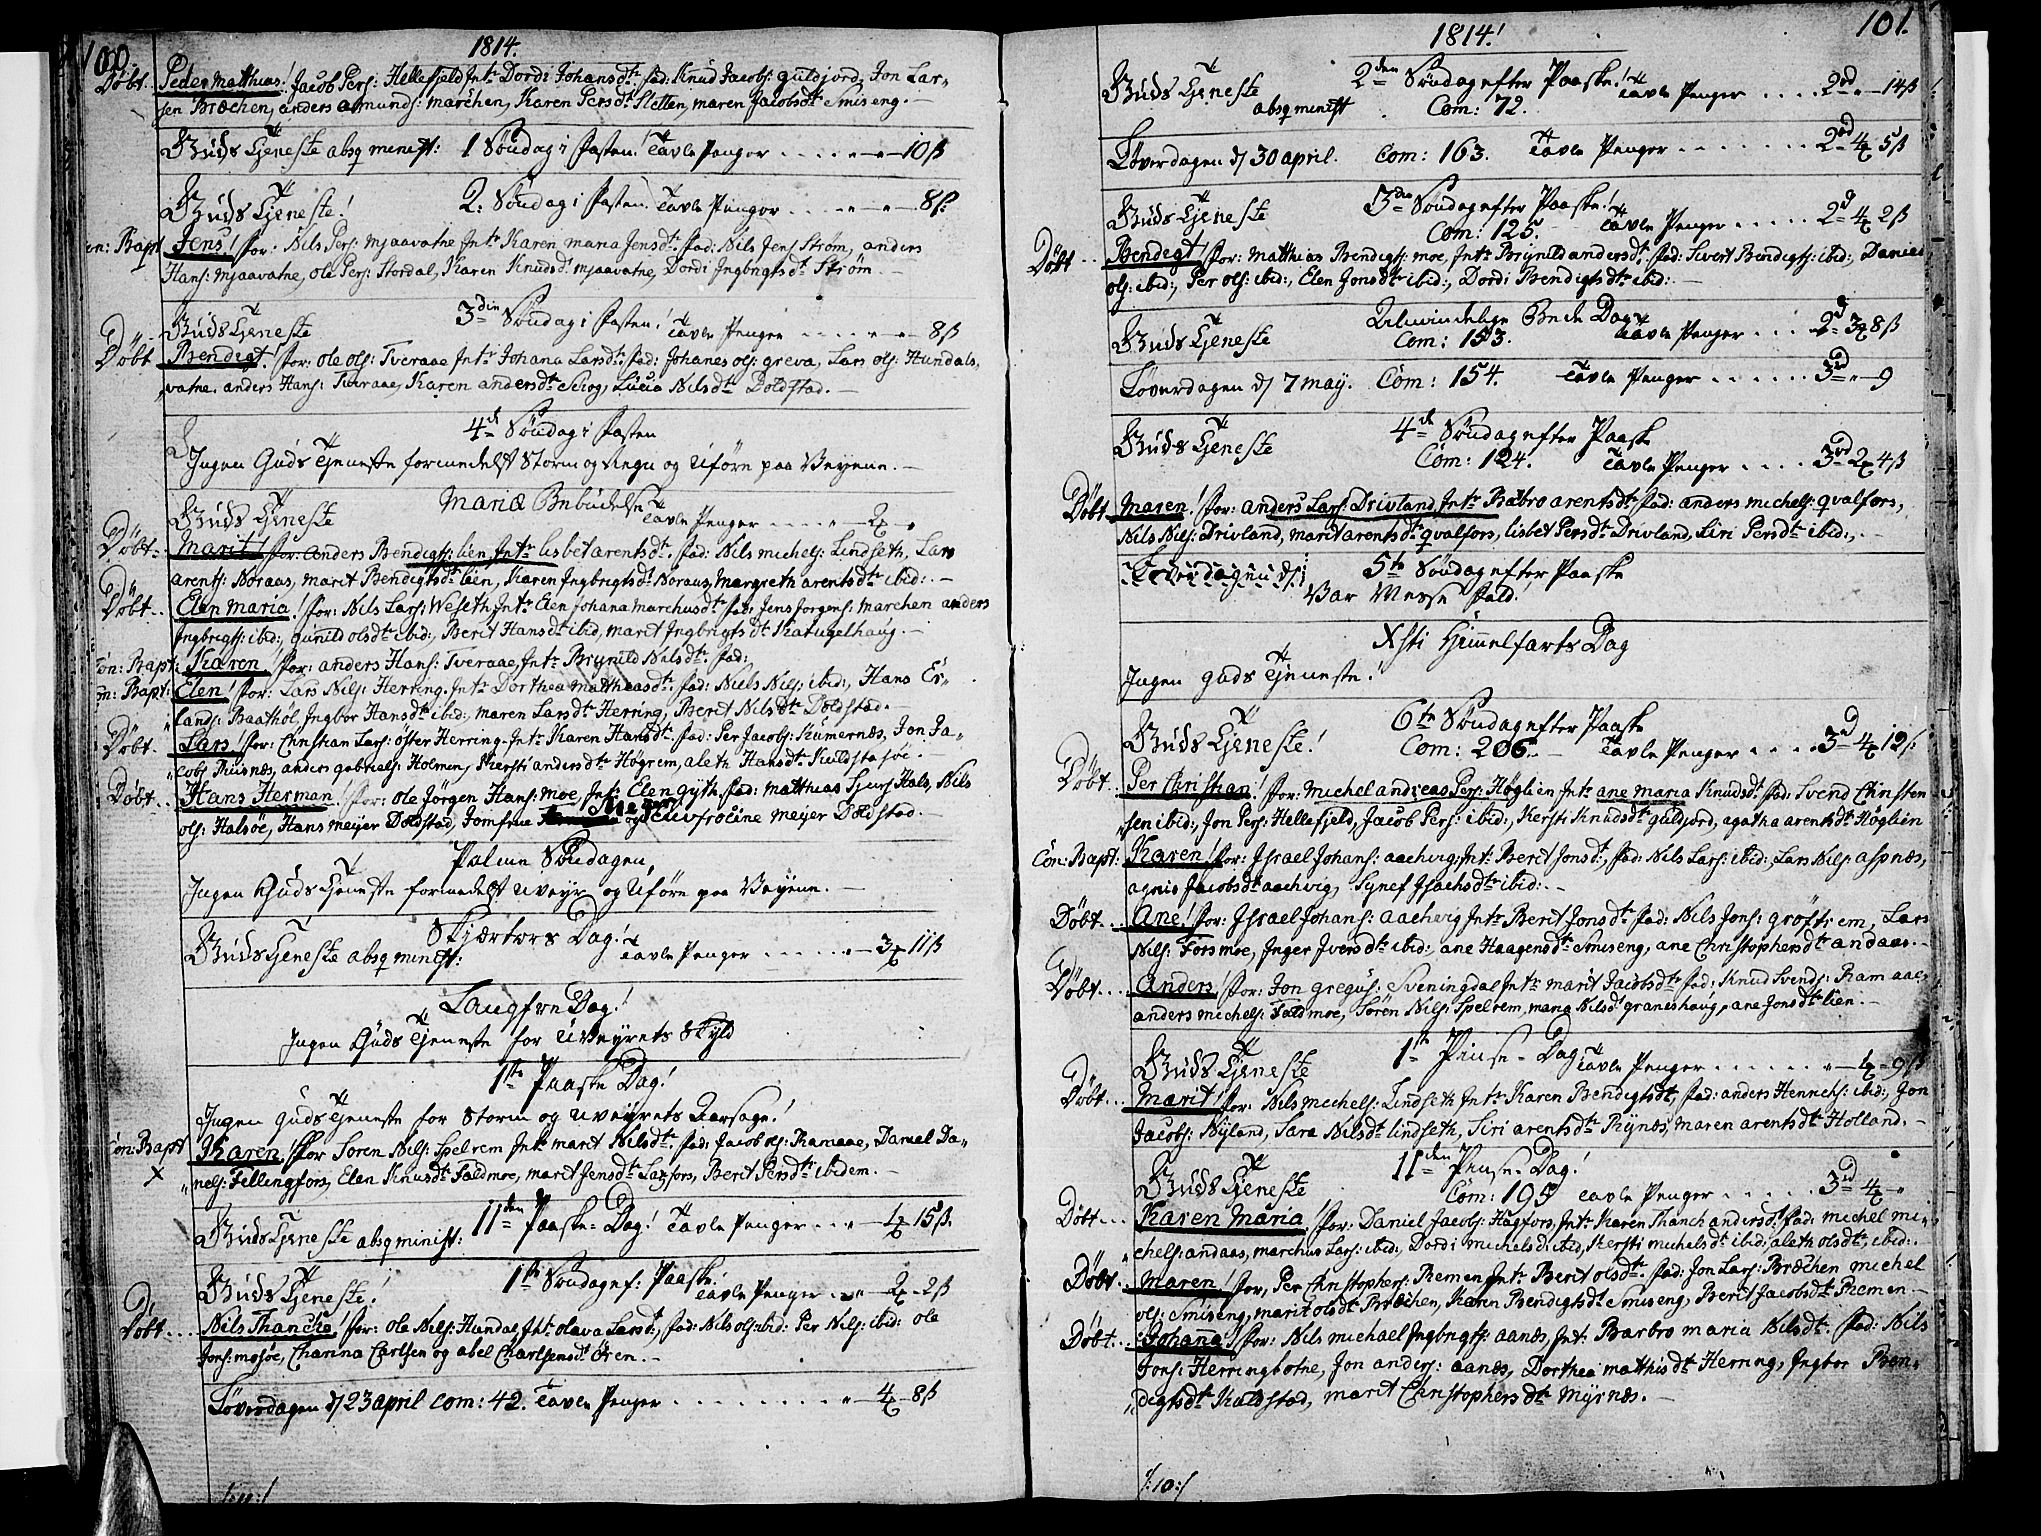 100.
1814.
Döbt. Peder Matthias! For: Jacob Pers: Hellefjeld Int: Dordi Johansdt: Fad: Knud Jacobs: guldjord, Jon Lar-
sen Bræchen, anders amunds: marchen, Karen Persdt Sletten, maren Jacobsdt Smiseng.
Guds Tjeneste absq minist: 1 Söndag i Fasten! Tavle Penger . . . . 10 ß
Guds Tjeneste! 2: Söndag i Fasten. Tavle Penger . . . . 8 ß
Con: Bapt Jens! For: Nils Pers: mjaavatne Int: Karen maria Jensdt. Fad: Nils Jens Ström, anders
Hans: mjaavatne, ole Pers: Stordal, Karen Knudsd. mjaavatne, Dordi Ingbrigtsdt Ström.
Guds Tjeneste 3die Söndag i Fasten! Tavle Penger . . . . 8 ß
Döbt Bendigt! For: ole ols: Tveraae Int: Johana Larsdt. Fad: Johanes ols: greva, Lars ols: Hundals,
vatne. anders Hans: Tveraae, Karen andersdt Skog, Lucia Nilsdt Doldstad.
4de Söndag i Fasten
Ingen Guds Tjeneste formedelst Storm og Regn og Uföre paa Veyene.
Guds Tjeneste Mariæ Bebudelse Tavle Penger . . . . 2
Döbt. Marit! For: anders Bendigts: lien Int: lisbet arentsdt. Fad: Nils michels: Lindseth, Lars
arents: Noraas, marit Bendigtsdt lien, Karen Ingbrigtsdt Noraas, Margreth arentsdt ibid:
Döbt.. Elen maria! For: Nils Lars: Weseth Int: Elen Johana marchusdt Fad: Jens Jorgens: marchen anders
Ingbrigts: ibid:, gunild olsdt ibid:, Berit Hansdt ibid, marit Ingbrigtsdt Katugelhaug.
Con: Bapt: Karen For: anders Hans: Tveraae, Int: Brynild Nilsdt. Fad:
Con: Bapt: Elen! For: Lars Nils: Herring. Int: Dorthea matthiasdt. Fad: Niels Nils: ibid:, Hans Er-
lands: Baathöl, Ingbor Hansdt ibid:, maren Larsdt Herring, Berit Nilsdt Doldstad.
Döbt. Lars! For: Christian Lars: öster Herring. Int: Karen Hansdt. Fad: Per Jacobs: Kumernæs, Jon Ja-
cobs Ruisnæs, anders gabriels: Holmen, Kersti andersdt Högrem, aleth Hansdt Kuldstasöe.
Döbt.. Hans Herman! For: Ole Jörgen Hans: moe Int: Elen gyth. Fad: matthias Sjurs: Hals, Nils
ols: Halsöe, Hans meyer Doldstad, Jomfrue og Eeufrosine meyer Doldstad.
Palme Söndagen,
Ingen Guds Tjeneste formedelst Uveyr og Uföre paa Veyene.
Skjærtors Dag!
Guds Tjeneste absq minist: Tavle Penger . . . . 3 11 ß
Langfre Dag!
Ingen Guds Tjeneste for Uveyrets Skyld
1te Paaske Dag!
Ingen guds Tjeneste for Storm og uveyrets Aarsage!
Con: Bapt Karen! For Soren Nils: Spelrem Int. marit Nilsdt. Fad: Jacob ols: Ramaae, Daniel Da-
× niels: Fellingfors, Elen Knusdt Faldmoe, marit Jensdt Laxfors, Berit Persdt ibidem.
Guds Tjeneste absq minist: IIden Paaske-Dag! Tavle Penger . . . 4 15 ß
Guds Tjeneste! 1te Söndag ef: Paaske. Tavle Penger . . 2 2 ß
Döbt.... Nils Thanche! For: Ole Nils: Hundal, Int. olava Larsdt, Fad: Nils ols: ibid: Per Nils: ibid: ole
Jons: mosöe, Charina Carlsen og abel Charlsensd. ören.
Löverdagen d/ 23 april Com: 42. Tavle Penger . . . . . . . . 4 8 ß
101.
1814!
Guds Tjeneste 2den Söndag efter Paaske! Tavle Penger . . . . 2rd 14 ß
absq minist Com: 72.
Löverdagen d/ 30 april. Com: 163. Tavle Penger . . . . . . . 2rd 4 5 ß
Guds Tjeneste 3die Söndag efter Paaske!
Com: 125. Tavle Penger . . . . . 2d 4 2 ß
Döbt .. Bendigt! For: Matthias Bendigts: moe, Int: Brynild andersdt. Fad: Sivert Bendigts: ibid:, Daniel
ols: ibid:, Per ols: ibid:, Elen Jonsdt ibid:, Dordi Bendigtsdt ibid:
Guds Tjeneste Almindelige Bede Dag
Com: 153. Tavle Penger . . . 2d 3 8 ß
Löverdagen d/ 7 may. Com: 154. Tavle Penger . . . . . . 3rd 9
Guds Tjeneste 4de Söndag efter Paaske
Com: 124. Tavle Penger . . . . 3rd 2 4 ß
Döbt Maren! For: anders Lars: Drivland, Int: Barbro arentsdt. Fad: anders michels: qvalfors,
Nils Nils: Drivland, marit arentsdt qvalfors, lisbet Persdt Drivland, Siri Persdt ibid:,
Löverdagen d/: 5te Söndag efter Paaske
Var Messe Fald!
Xsti Himmelfarts Dag
Ingen guds Tjeneste!
Guds Tjeneste! 6te Söndag efter Paaske
Com: 206. Tavle Penger . . . . 3d 4 12 ß
Döbt.. Per Christian! For: Michel andreas Pers: Höglien Int: ane maria Knudsdt Fad: Svend Christen
sen ibid:, Jon Pers: Hellefjeld, Jacob Pers: ibid:, Kersti Knudsdt guldjord, agatha arentsdt Höglien
Con: Bapt: Karen! For: Israel Johans: aachvig, Int: Berit Jonsdt., Fad: Nils Lars: ibid:, Lars Nils: aspnæs,
agnis Jacobsdt aachvig, Synef Isachsdt ibid:.
Döbt... Ane! For: Israel Johans: aachvig Int: Berit Jonsdt Fad: Nils Jons: gröftrem, Lars
Nils: Forsmoe, Inger Iversdt ibid:, ane Haagensdt Smiseng, ane Christophersdt andaas.
Döbt.... Anders! For: Jon gregus: Sveningdal Int: marit Jacobsdt Fad: Knud Svends: Ramaae,
anders michels: Faldmoe, Sören Nils: Spelrem, maria Nilsd. graneshaug, ane Jonsdt lien.
Guds Tjeneste 1te Pinse-Dag Tavle Penger . . . . . . . 4 9 ß
Döbt... Marit! For: Nils michels: Lindseth Int: Karen Bendigtsdt, Fad: anders Henrichs: ibid:, Jon
Jacobs: Nyland, Sara Nilsdt lindseth, Siri arentsdt Rynes, maren arentsdt Holland.
IIden Pinse-Dag!
Guds Tjeneste Com: 195 Tavle Penger . . . . . 3rd 4
Döbt.... Karen Maria! For: Daniel Jacobs: Hagfors, Int: Karen Thanch andersd. Fad: michel mi-
chels: andaas, marchus Lars: ibid:, Dordi michelsd: ibid, Kersti michelsdt ibid: aleth olsdt, ibid:.
Döbt... Maren! For, Per Christophers: Remen, Int: Berit olsdt. Fad: Jon Lars: Bræchen michel
ols: Smiseng, marit olsdt Bræchen, Karen Bendigtsdt Smiseng, Berit Jacobsdt Remen
Döbt... Johana! For: Nils michael Ingbrigts: aanæs, Int: Barbro maria Nilsdt. Fad: Nils
Jons: Herringbotne, Jon anders: aanæs, Dorthea matthisdt Herring, Ingbor Ben-
digtsdt Kaldstad, marit Christophersdt Myrnæs.
/:10:/